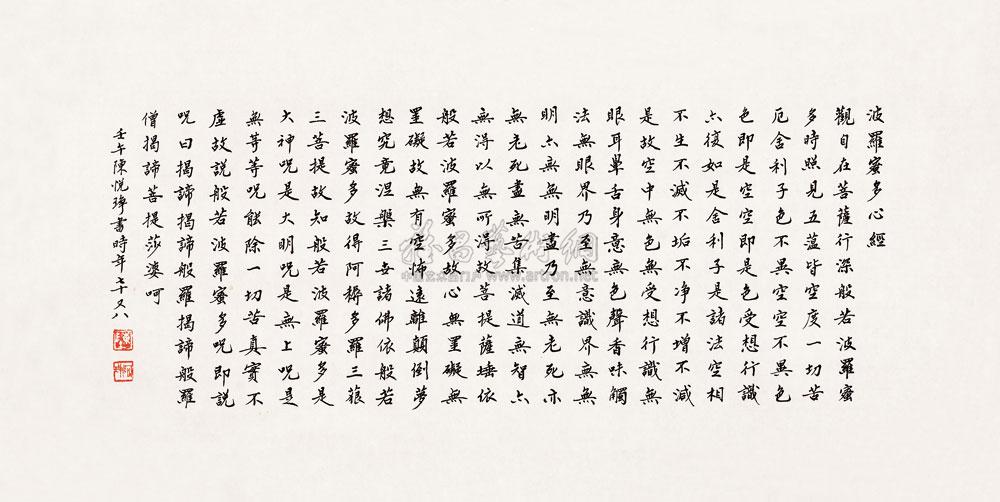 波羅蜜多心經
觀自在菩薩行深般若波羅蜜
多時照見五蘊皆空度一切苦
厄舍利子色不異空空不異色
色即是空空即是色受想行識
亦復如是舍利子是諸法空相
不生不滅不垢不净不增不減
是故空中無色無受想行識無
眼耳鼻舌身意無色聲香味觸
法無眼界乃至無意識界無無
明亦無無明盡乃至無老死亦
無老死盡無苦集滅道無智亦
無得以無所得故菩提薩埵依
般若波羅蜜多故心無罣礙無
罣礙故無有恐怖遠離顛倒夢
想究竟涅槃三世諸佛依般若
波羅蜜多故得阿耨多羅三藐
三菩提故知般若波羅蜜多是
大神呪是大明呪是無上呪是
無等等呪能除一切苦真實不
虛故說般若波羅蜜多呪即說
呪曰揭諦揭諦般羅揭諦般羅
僧揭諦菩提莎婆呵
壬午陳悅璋書時年七十又八
雅昌藝術網
www.artron.net